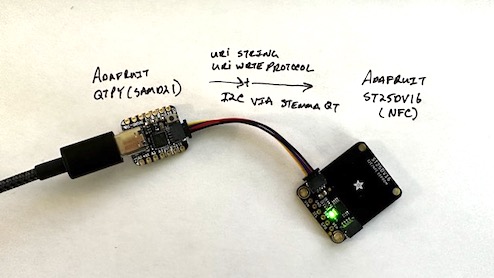 ADAFRUIT
QTPY (SAMD21)
URI STRING
URI WRITE PROTOCOL
I2C VIA STEMMA QT
ADAFRUIT
ST25DV16
(NFC)
ST25DV16